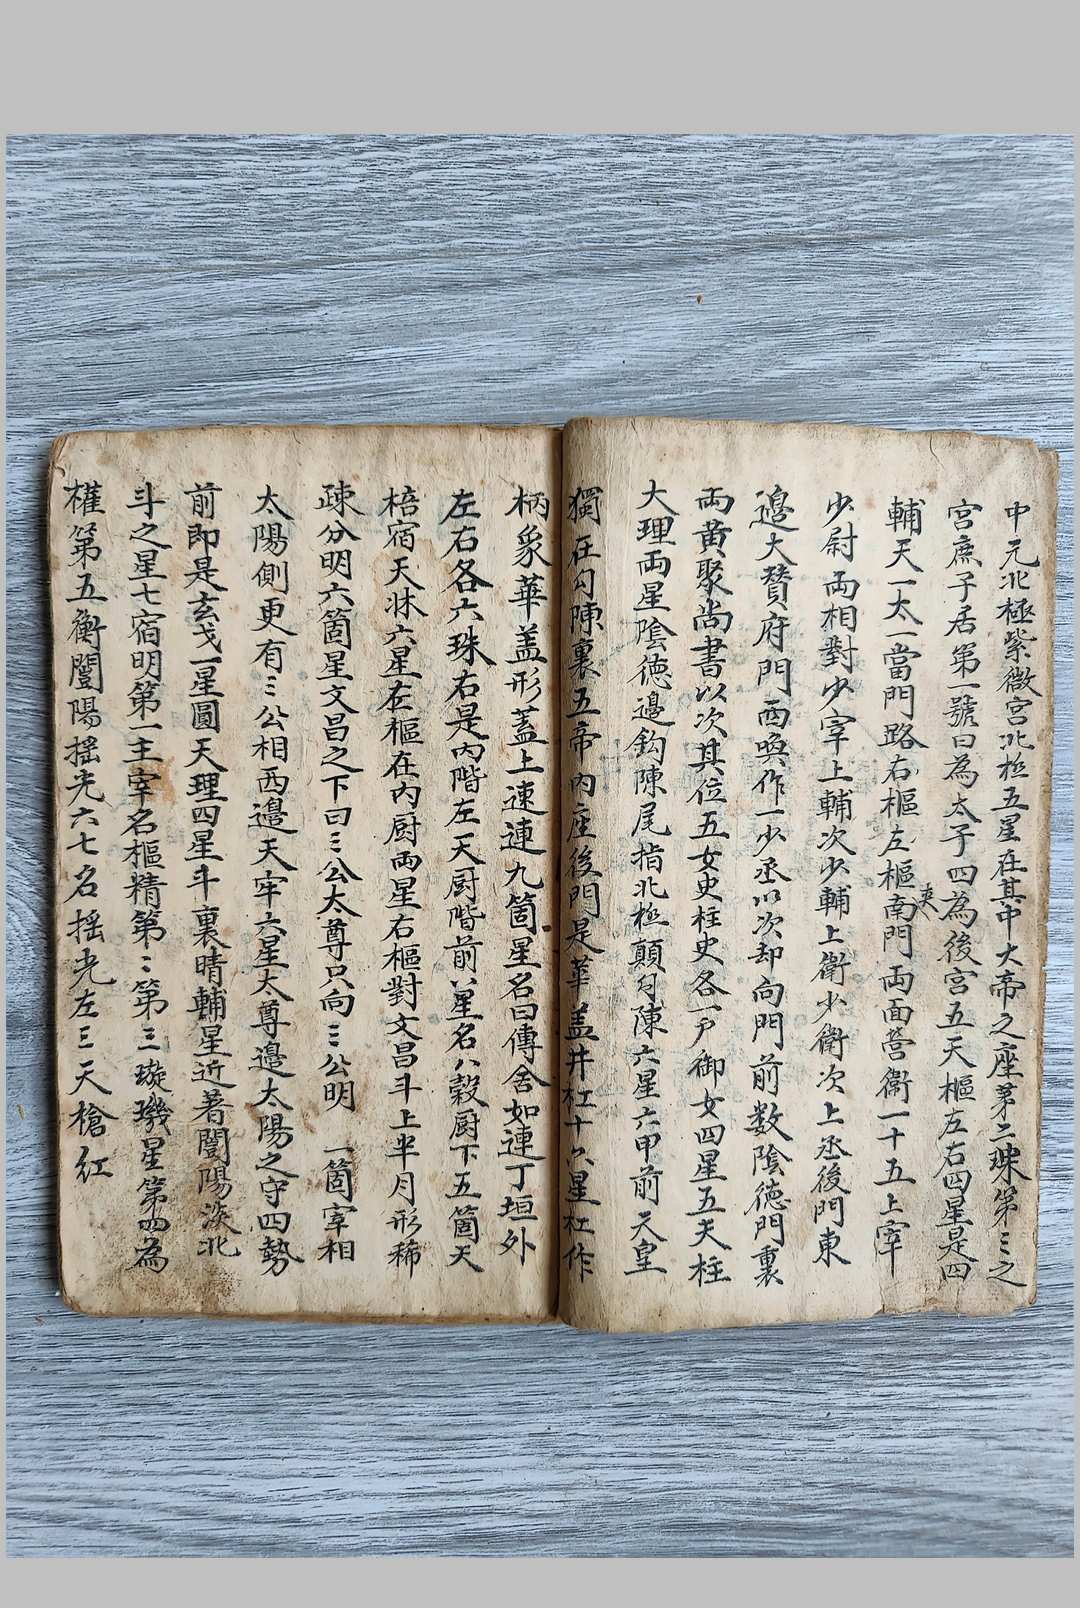 中元北極紫微宮北極五星在其中大帝之座第二珠第三之
宮庶子居第一號曰為太子四為後宮五天樞左右四星是四
輔天一太一當門路右樞左樞夾南門兩面營衛一十五上宰
少尉兩相對少宰上輔次少輔上衛少衛次上丞後門東
邊大贊府門西喚作一少丞以次却向門前数陰德門裏
兩黃聚尚書以次其位五女史柱史各一戶御女四星五天柱
大理兩星陰德邊鈎陳尾指北極顛勾陳六星六甲前天皇
獨在勾陳裏五帝內座後門是華盖并杠十六星杠作
柄象華盖形蓋上連連九箇星名曰傳舍如連丁垣外
左右各六珠右是內階左天厨階前八星名八穀厨下五箇天
棓宿天牀六星在樞在內厨兩星右樞對文昌斗上半月形稀
疎分明六箇星文昌之下曰三公太尊只向三公明 一箇宰相
太陽側更有三公相西邊天牢六星太尊邊太陽之守四勢
前即是玄戈一星圓天理四星斗裏晴輔星近著闓陽淡北
斗之星七宿明第一主宰名樞精第二第三璇璣星第四為
權第五衡闓陽搖光六七名搖光左三天槍紅